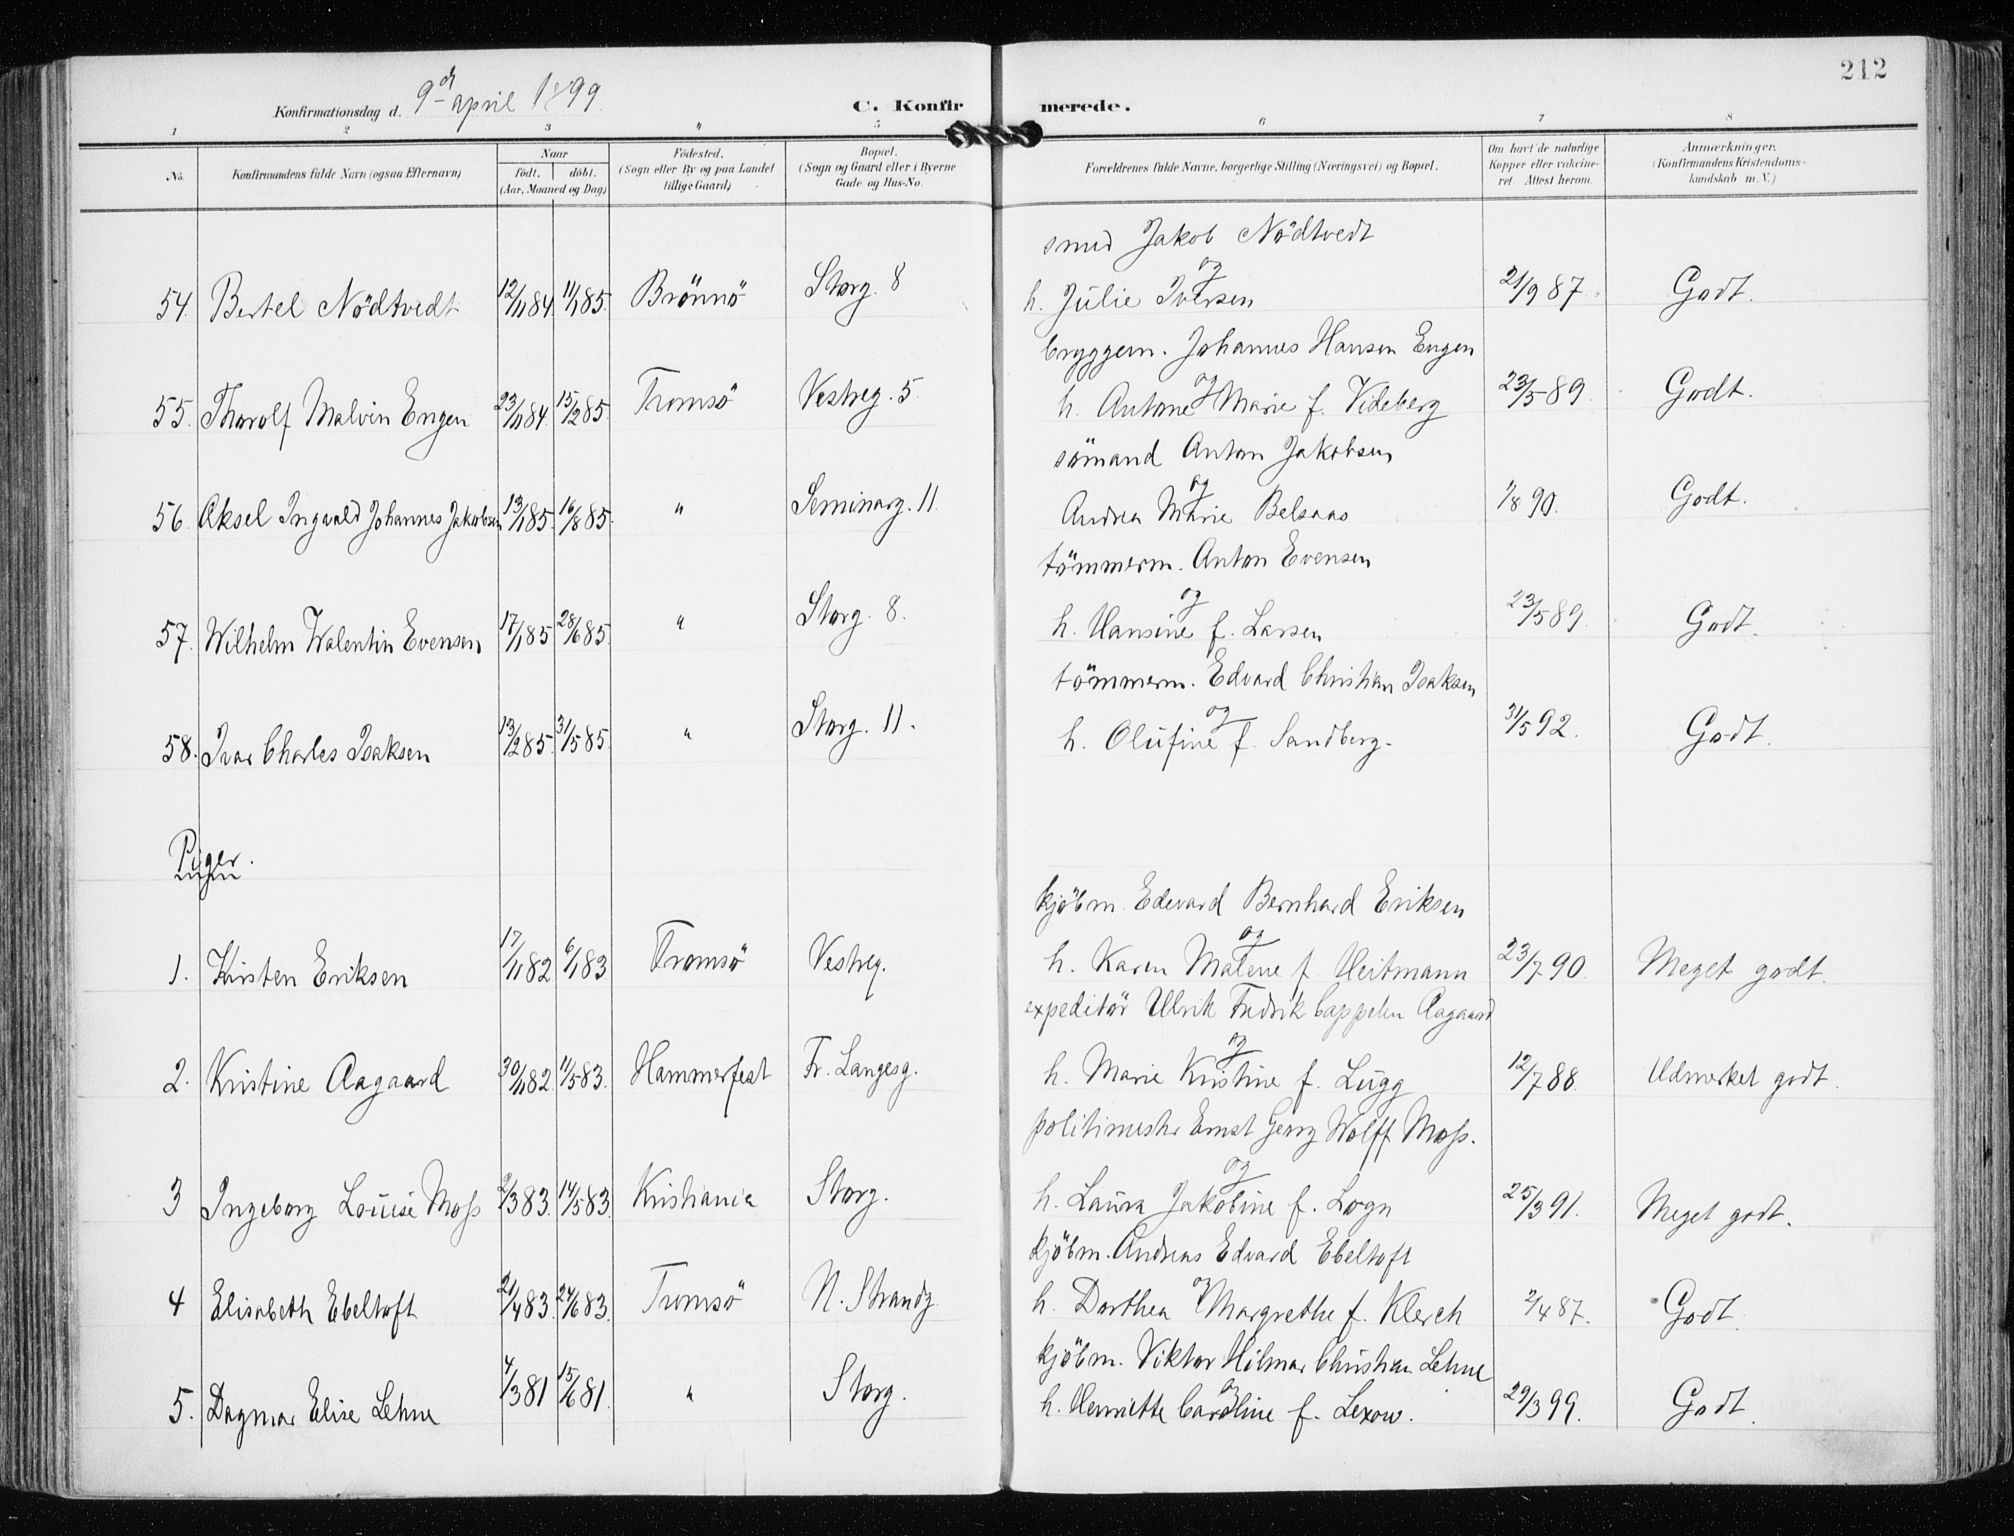 212
Konfirmationsdag d. 9de april 1899.
C. Konfirmerede.
1 2 3 " 5 6 7 8
No. Konfirmandens fulde Navn (ogsaa Efternavn) Naar født. døbt. (Aar, Maaned og Dag) Fødested. (Sogn eller By og paa Landet tillige Gaard) Bopæl. (Sogn og Gaard eller i Byerne Gade og Hus-No. Forældrenes fulde Navne, borgerlige Stilling (Næringsvei) og Bopæl. Om havt de naturlige Kopper eller vakcineret. Attest herom. Anmærkninger. (Konfirmandens Kristendomskundskab m. V.)
smed Jakob Nödtvedt
og
54. Bertel Nödtvedt 12/11 84. 11/1 85. Brönnö Storg. 8 h. Julie Iversen 21/9 87. Godt.
bryggem. Johannes Hansen Engen
og
55. Thorolf Malvin Engen 23/11 84. 15/2 85. Tromsö Vestreg. 5. h. Antone Marie f. Videberg 23/5 89. Godt.
sömand Anton Jakobsen
og
56. Aksel Ingvald Johannes Jakobsen 13/1 85. 16/8 85. " Seminarg. 11. Andrea Marie Belsaas 1/8 90. Godt.
tömmerm. Anton Evensen
og
57. Wilhelm Walentin Evensen 17/1 85 28/6 85. " Storg. 8. h. Hansine f. Larsen 23/5 89. Godt.
tömmerm. Edvard Christian Isaksen
og
58. Ivar Charles Isaksen 13/2 85. 31/5 85. " Storg. 11. h. Olufine f. Sandberg. 31/5 92. Godt.
Piger.
kjöbm. Edevard Bernhard Eriksen
og
1. Kirsten Eriksen 17/11 82 6/1 83 Tromsö Vestreg. h. Karen Malene f. Heitmann 23/7 90. Meget godt.
expeditör Ulrik Fredrik Cappelen Aagaard
og
2. Kristine Aagaard 30/11 82. 11/5 83. Hammerfest Fr. Langesg. h. Marie Kristine f. Lugg 12/7 88. Udmerket godt.
politimester Ernst Georg Wolff Moss.
og
3 Ingeborg Louise Moss 2/3 83. 14/5 83. Kristiania Storg. h. Laura Jakobine f. Logn 25/3 91. Meget godt.
kjöbm. Andreas Edvard Ebeltoft
og
4 Elisabeth Ebeltoft 21/4 83. 24/6 83. Tromsö N. Strandg. h. Dorthea Margrethe f. Klerch 2/4 87. Godt.
kjöbm. Viktor Hilmar Christian Lehne
og
5. Dagmar Elise Lehne 4/3 81 15/6 81. " Storg. h. Henriette Caroline f. Lexow. 29/3 99. Godt.